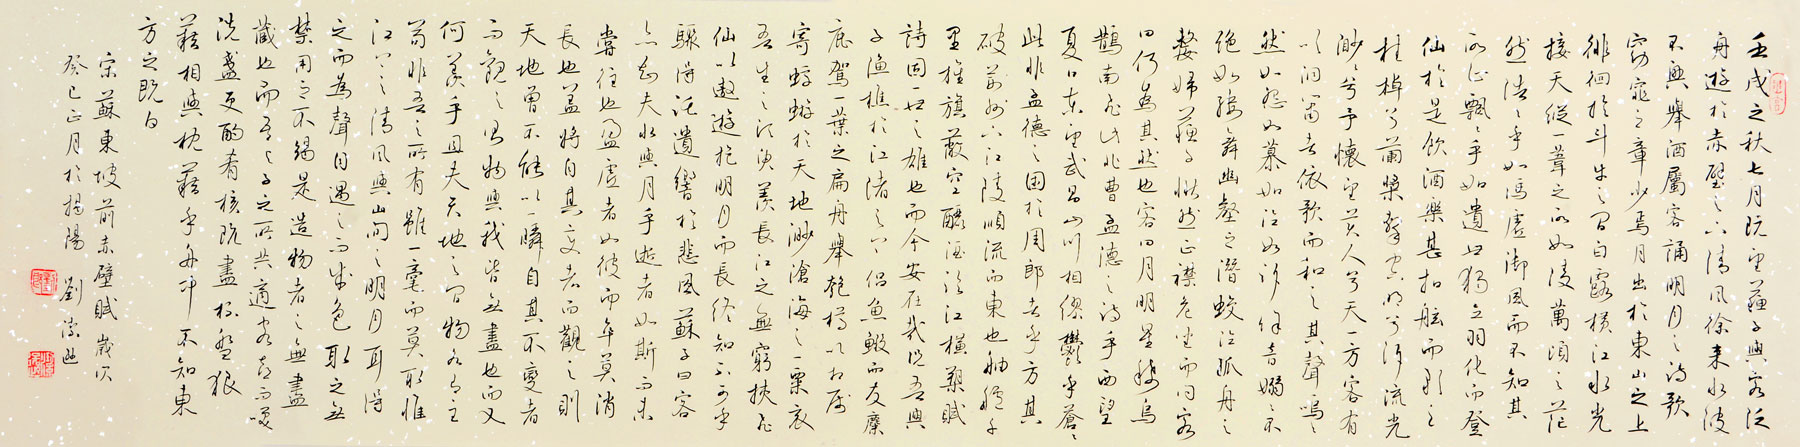 壬戌之秋七月既望蘇子與客泛
舟遊於赤壁之下清風徐來水波
不興舉酒屬客誦明月之詩歌
窈窕之章少焉月出於東山之上
徘徊於斗牛之間白露橫江水光
接天縱一葦之所如凌萬頃之茫
然浩浩乎如馮虛御風而不知其
所止飄飄乎如遺世獨立羽化而登
仙於是飲酒樂甚扣舷而歌之
桂棹兮蘭槳擊空明兮泝流光
渺兮予懷望美人兮天一方客有
吹洞簫者依歌而和之其聲嗚嗚
然如怨如慕如泣如訴餘音嫋不
絕如縷舞幽壑之潛蛟泣孤舟之
嫠婦蘇子愀然正襟危坐而問客
曰何為其然也客曰月明星稀烏
鵲南飛此非曹孟德之詩乎西望
夏口東望武昌山川相繆鬱乎蒼蒼
此非孟德之困於周郎者乎方其
破荊州下江陵順流而東也舳艫千
里旌旗蔽空釃酒臨江橫槊賦
詩固一世之雄也而今安在哉況吾與
子漁樵於江渚之上侶魚蝦而友麋
鹿駕一葉之扁舟舉匏樽以相屬
寄蜉蝣於天地渺滄海之一粟哀
吾生之須臾羨長江之無窮挾飛
仙以遨遊抱明月而長終知不可乎
驟得託遺響於悲風蘇子曰客
亦知夫水與月乎逝者如斯而未
嘗往也盈虛者如彼而卒莫消
長也蓋將自其變者而觀之則
天地曾不能以一瞬自其不變者
而觀之則物與我皆無盡也而又
何羨乎且夫天地之間物各有主
苟非吾之所有雖一毫而莫取惟
江上之清風與山間之明月耳得
之而為聲目遇之而成色取之無
禁用之不竭是造物者之無盡
藏也而吾與子之所共適客喜而笑
洗盞更酌肴核既盡杯盤狼
藉相與枕藉乎舟中不知東
方之既白
宋蘇東坡前赤壁賦歲次
癸巳正月於揭陽劉